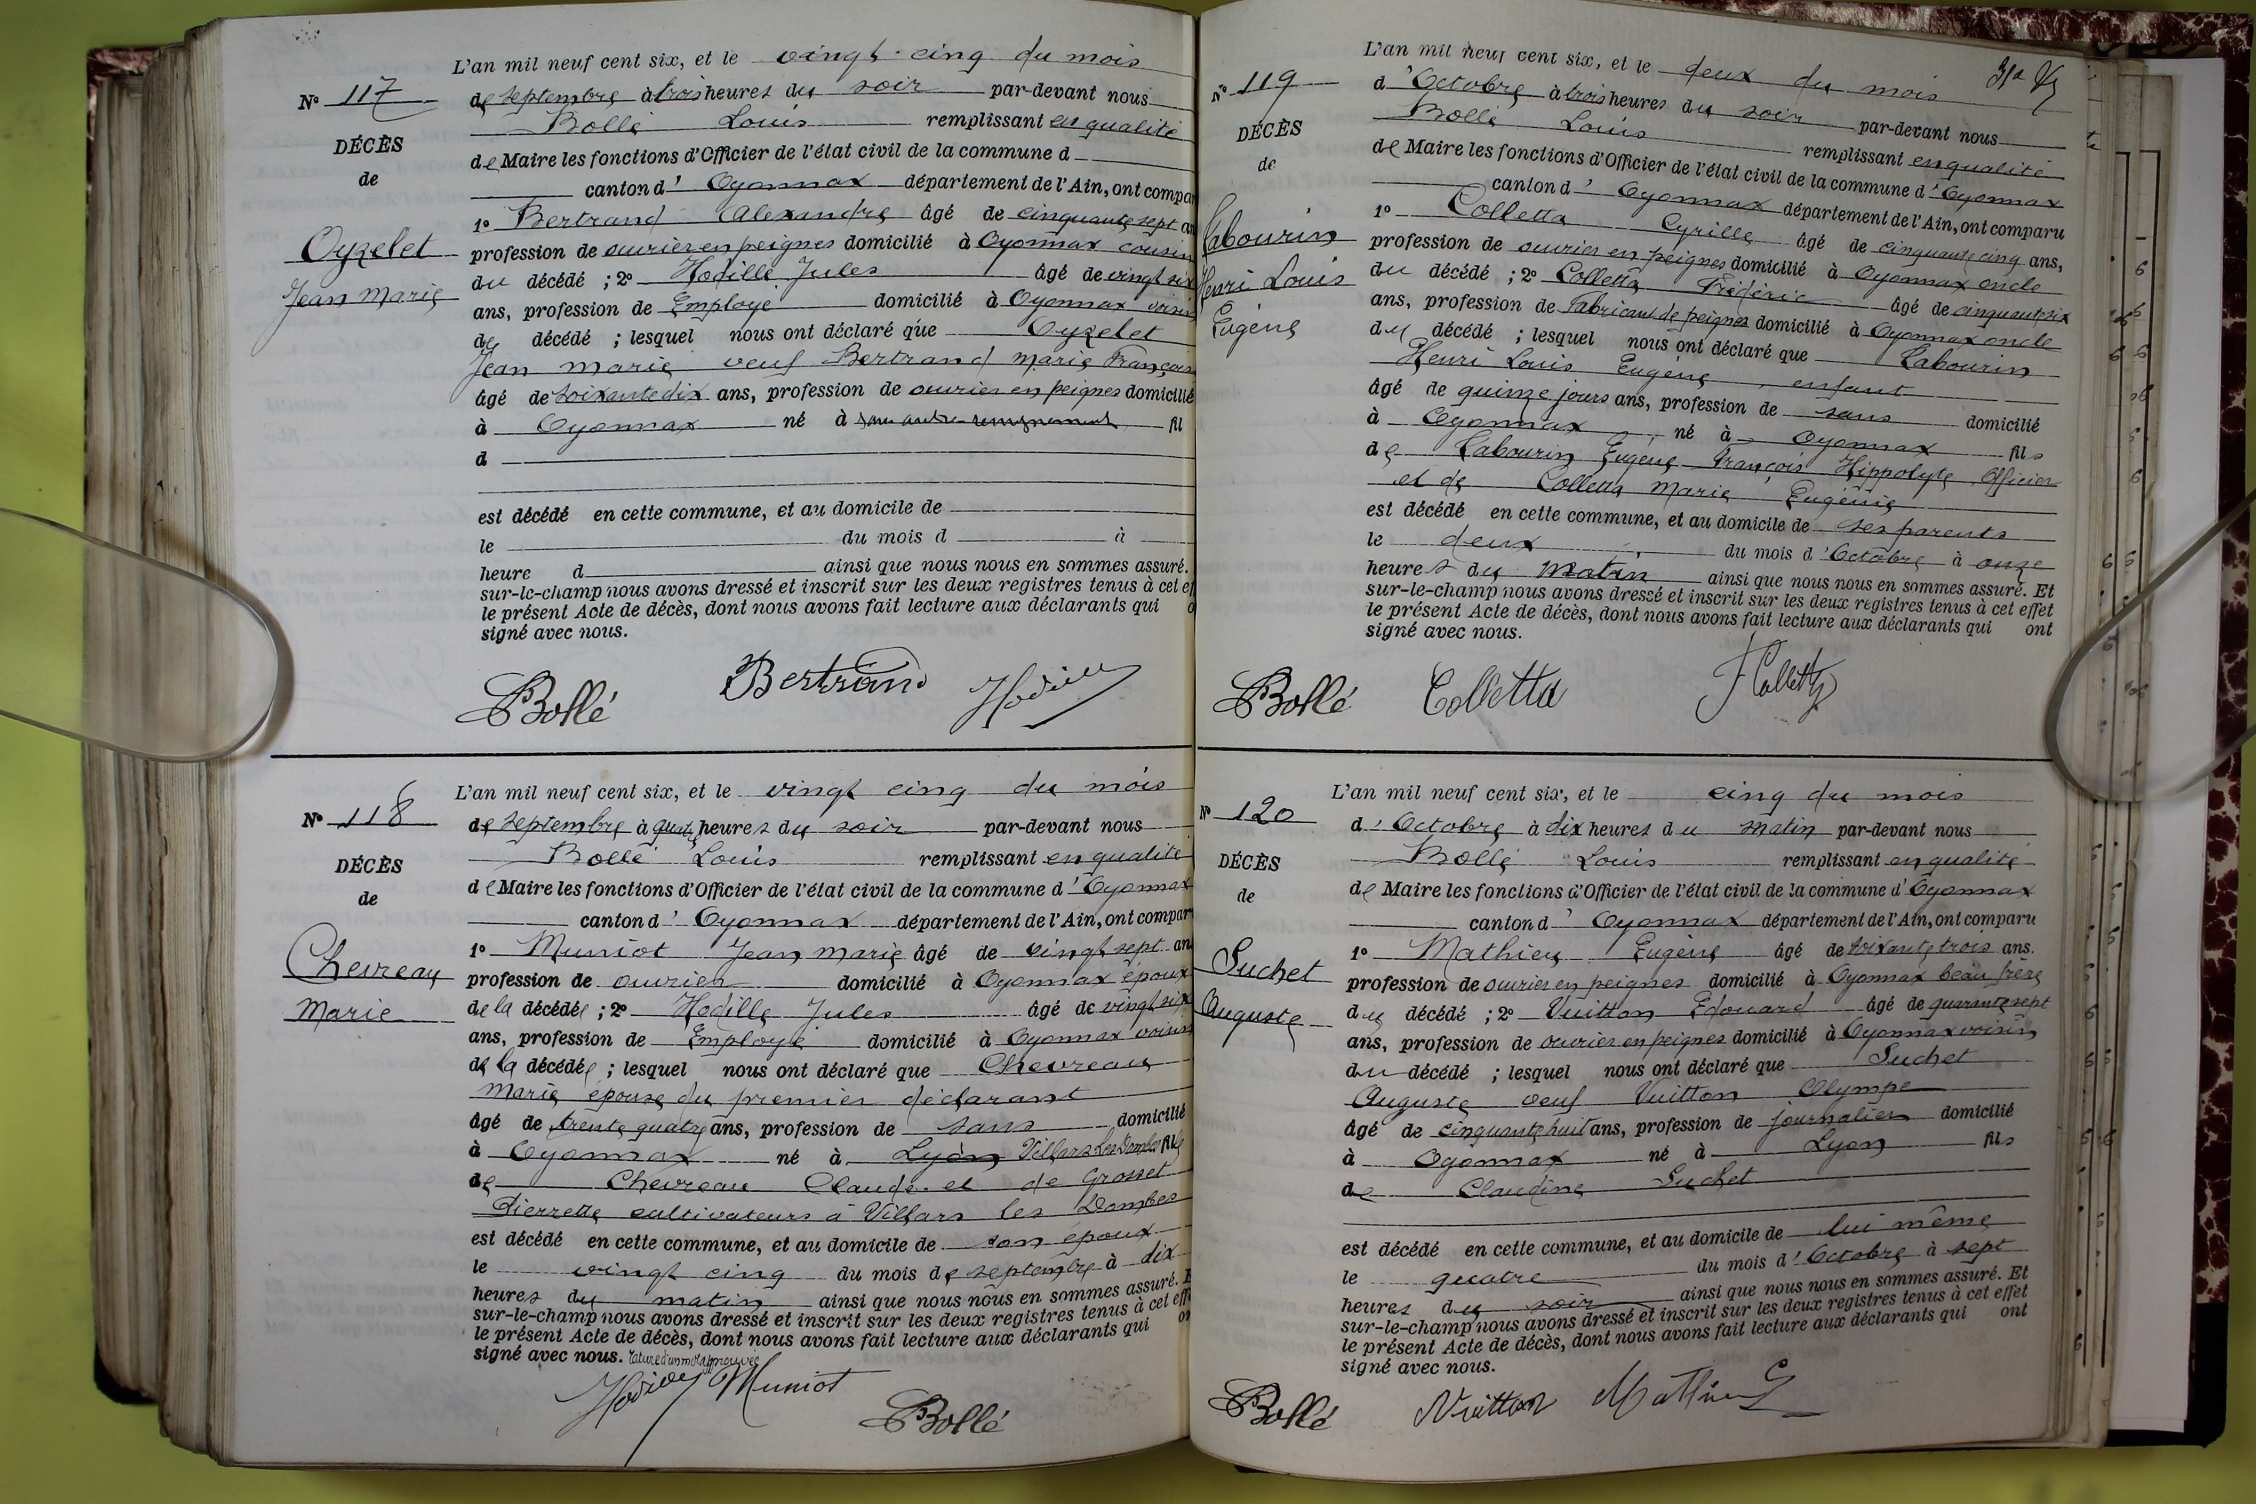 L'an mil neuf cent six, et le vingt-cinq du mois
N° 117
de septembre à trois heures du soir par-devant nous
Bollé Louis remplissant en qualité
DÉCÈS
de Maire les fonctions d'Officier de l'état civil de la commune d
de
canton d'Oyonnax département de l'Ain, ont compar
1° Bertrand Alexandre âgé de cinquante sept an
Oyzelet
profession de ouvrier en peignes domicilié à Oyonnax cousin
du décédé ; 2° Hodille Jules âgé de vingt six
Jean Marie
ans, profession de Employé domicilié à Oyonnax voisin
du décédé ; lesquel nous ont déclaré que Oyzelet
Jean marie veuf Bertrand marie François
âgé de soixante dix ans, profession de ouvrier en peignes domicilié
à Oyonnax né à sans autre renseignement fil
d
est décédé en cette commune, et au domicile de
le du mois d à
heure d ainsi que nous nous en sommes assuré.
sur-le-champ nous avons dressé et inscrit sur les deux registres tenus à cet ef
le présent Acte de décès, dont nous avons fait lecture aux déclarants qui o
signé avec nous.
Bollé Bertrand Hodille
L'an mil neuf cent six, et le vingt cinq du mois
N° 118
de septembre à quatre heures du soir par-devant nous
Bollé Louis remplissant en qualité
DÉCÈS
de Maire les fonctions d'Officier de l'état civil de la commune d'Oyonnax
de
canton d'Oyonnax département de l'Ain, ont compar
1° Muniot Jean marie âgé de vingt sept an
Chevreau
profession de ouvrier domicilié à Oyonnax époux
Marie
de la décédée ; 2° Hodille Jules âgé de vingt six
ans, profession de Employé domicilié à Oyonnax voisin
de la décédée ; lesquel nous ont déclaré que Chevreau
Marie épouse du premier déclarant
âgé de trente quatre ans, profession de sans domicilié
à Oyonnax né à Lyon Villars les Dombes fille
de Chevreau Claude et de Grosset
Pierrette cultivateurs à Villars les Dombes
est décédé en cette commune, et au domicile de son époux
le vingt cinq du mois de septembre à dix
heures du matin ainsi que nous nous en sommes assuré. E
sur-le-champ nous avons dressé et inscrit sur les deux registres tenus à cet eff
le présent Acte de décès, dont nous avons fait lecture aux déclarants qui on
signé avec nous. rature d'un mot approuvée
Hodille Muniot
Bollé
L'an mil neuf cent six, et le deux du mois
N° 119
d'Octobre à trois heures du soir par-devant nous
Bollé Louis remplissant en qualité
DÉCÈS
de Maire les fonctions d'Officier de l'état civil de la commune d'Oyonnax
de
canton d'Oyonnax département de l'Ain, ont comparu
1° Colletta Cyrille âgé de cinquante cinq ans,
Labourin
profession de ouvrier en peignes domicilié à Oyonnax oncle
Henri Louis
du décédé ; 2° Colletta Frédéric âgé de cinquante six
Eugène
ans, profession de fabricant de peignes domicilié à Oyonnax oncle
du décédé ; lesquel nous ont déclaré que Labourin
Henri Louis Eugène enfant
âgé de quinze jours ans, profession de sans domicilié
à Oyonnax né à Oyonnax fils
de Labourin Eugène François Hippolyte Officier
et de Colletta Marie Eugénie
est décédé en cette commune, et au domicile de ses parents
le deux du mois d'Octobre à onze
heures du matin ainsi que nous nous en sommes assuré. Et
sur-le-champ nous avons dressé et inscrit sur les deux registres tenus à cet effet
le présent Acte de décès, dont nous avons fait lecture aux déclarants qui ont
signé avec nous.
Bollé Colletta F Colletta
L'an mil neuf cent six, et le cinq du mois
N° 120
d'Octobre à dix heures du matin par-devant nous
Bollé Louis remplissant en qualité
DÉCÈS
de Maire les fonctions d'Officier de l'état civil de la commune d'Oyonnax
de
canton d'Oyonnax département de l'Ain, ont comparu
1° Mathieu Eugène âgé de soixante trois ans.
Suchet
profession de ouvrier en peignes domicilié à Oyonnax beau frère
Auguste
du décédé ; 2° Vuitton Edouard âgé de quarante sept
ans, profession de ouvrier en peignes domicilié à Oyonnax voisin
du décédé ; lesquel nous ont déclaré que Suchet
Auguste veuf Vuitton Olympe
âgé de cinquante huit ans, profession de journalier domicilié
à Oyonnax né à Lyon fils
de Claudine Suchet
est décédé en cette commune, et au domicile de lui même
le quatre du mois d'Octobre à sept
heures du soir ainsi que nous nous en sommes assuré. Et
sur-le-champ nous avons dressé et inscrit sur les deux registres tenus à cet effet
le présent Acte de décès, dont nous avons fait lecture aux déclarants qui ont
signé avec nous.
Bollé Vuitton Mathieu E